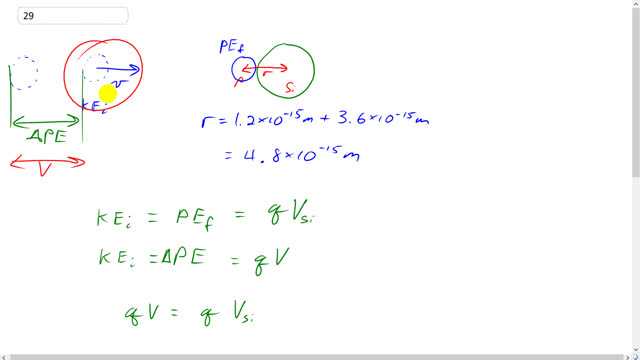 29
PE_f
v
r
P
Si
KE_i
ΔPE
V
r = 1.2×10^-15 m + 3.6×10^-15 m
= 4.8×10^-15 m
KE_i = PE_f = qV_Si
KE_i = ΔPE = qV
qV = q V_Si